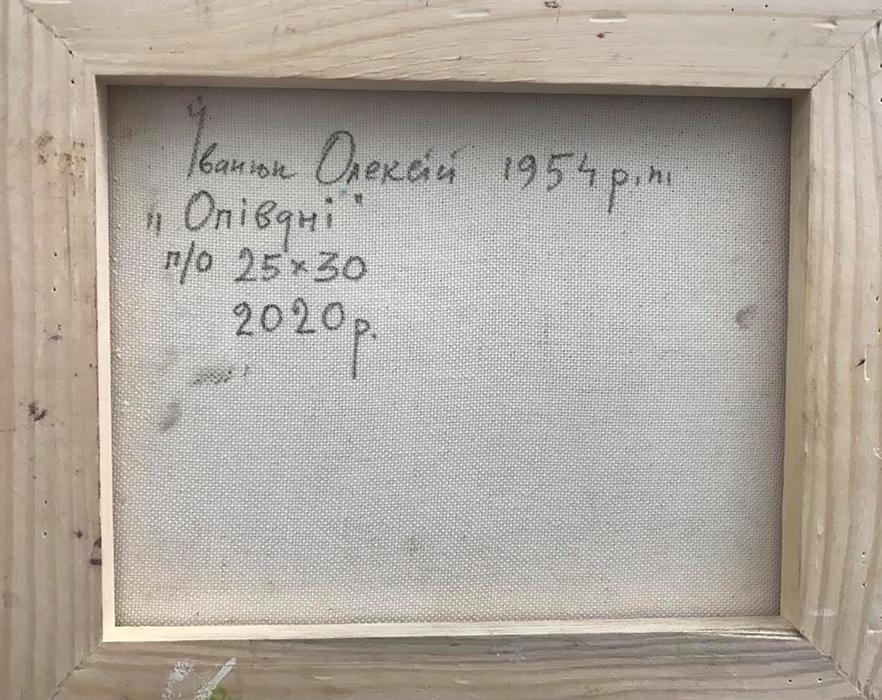 Іванюк Олексій 1954 р.н.
„Опівдні"
п/о 25×30
2020р.